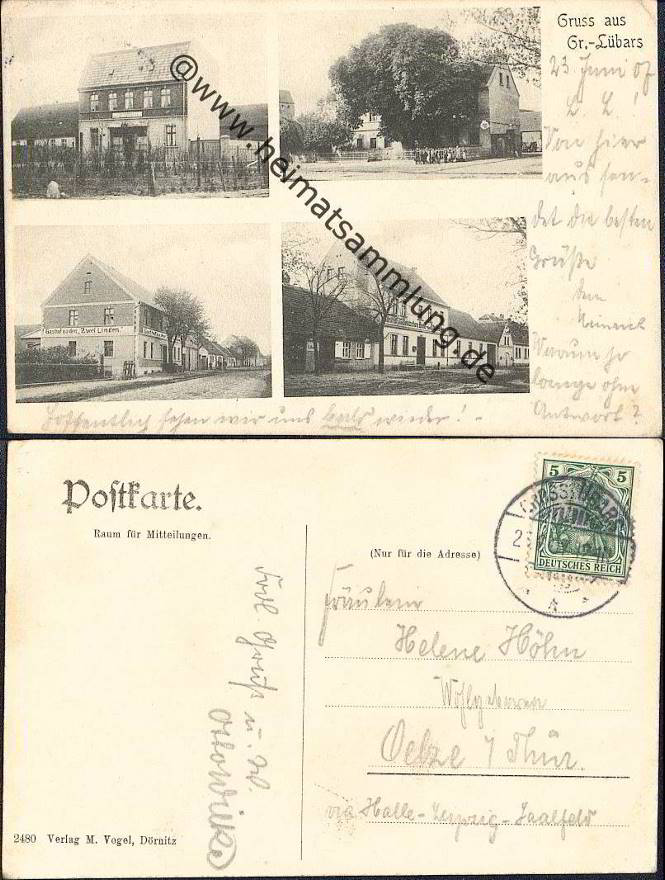 Gruss aus
Gr.-Lübars
23. Juni 07
L. L. !
Von hier
aus sen-
det die besten
Grüße
Dein
Heinrich
Warum so
lange ohne
Antwort?
Hoffentlich sehen wir uns bald wieder! -
Gasthof zu den "Zwei Linden"
@www.heimatsammlung.de
Postkarte.
Raum für Mitteilungen.
(Nur für die Adresse)
5 5
DEUTSCHES REICH
Fräulein
Helene Höhn
Wohlgeboren
Oelze / Thür.
via Halle-Leipzig-Saalfeld
Frdl. Gruß u. W.
Otto Wilke
2480 Verlag M. Vogel, Dörnitz